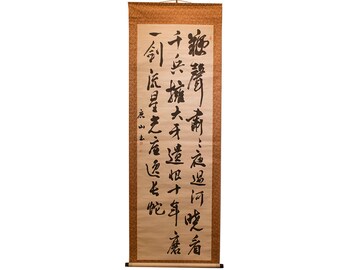 鞭聲肅々夜過河曉看
千兵擁大牙遺恨十年磨
一劍流星光底逸長蛇